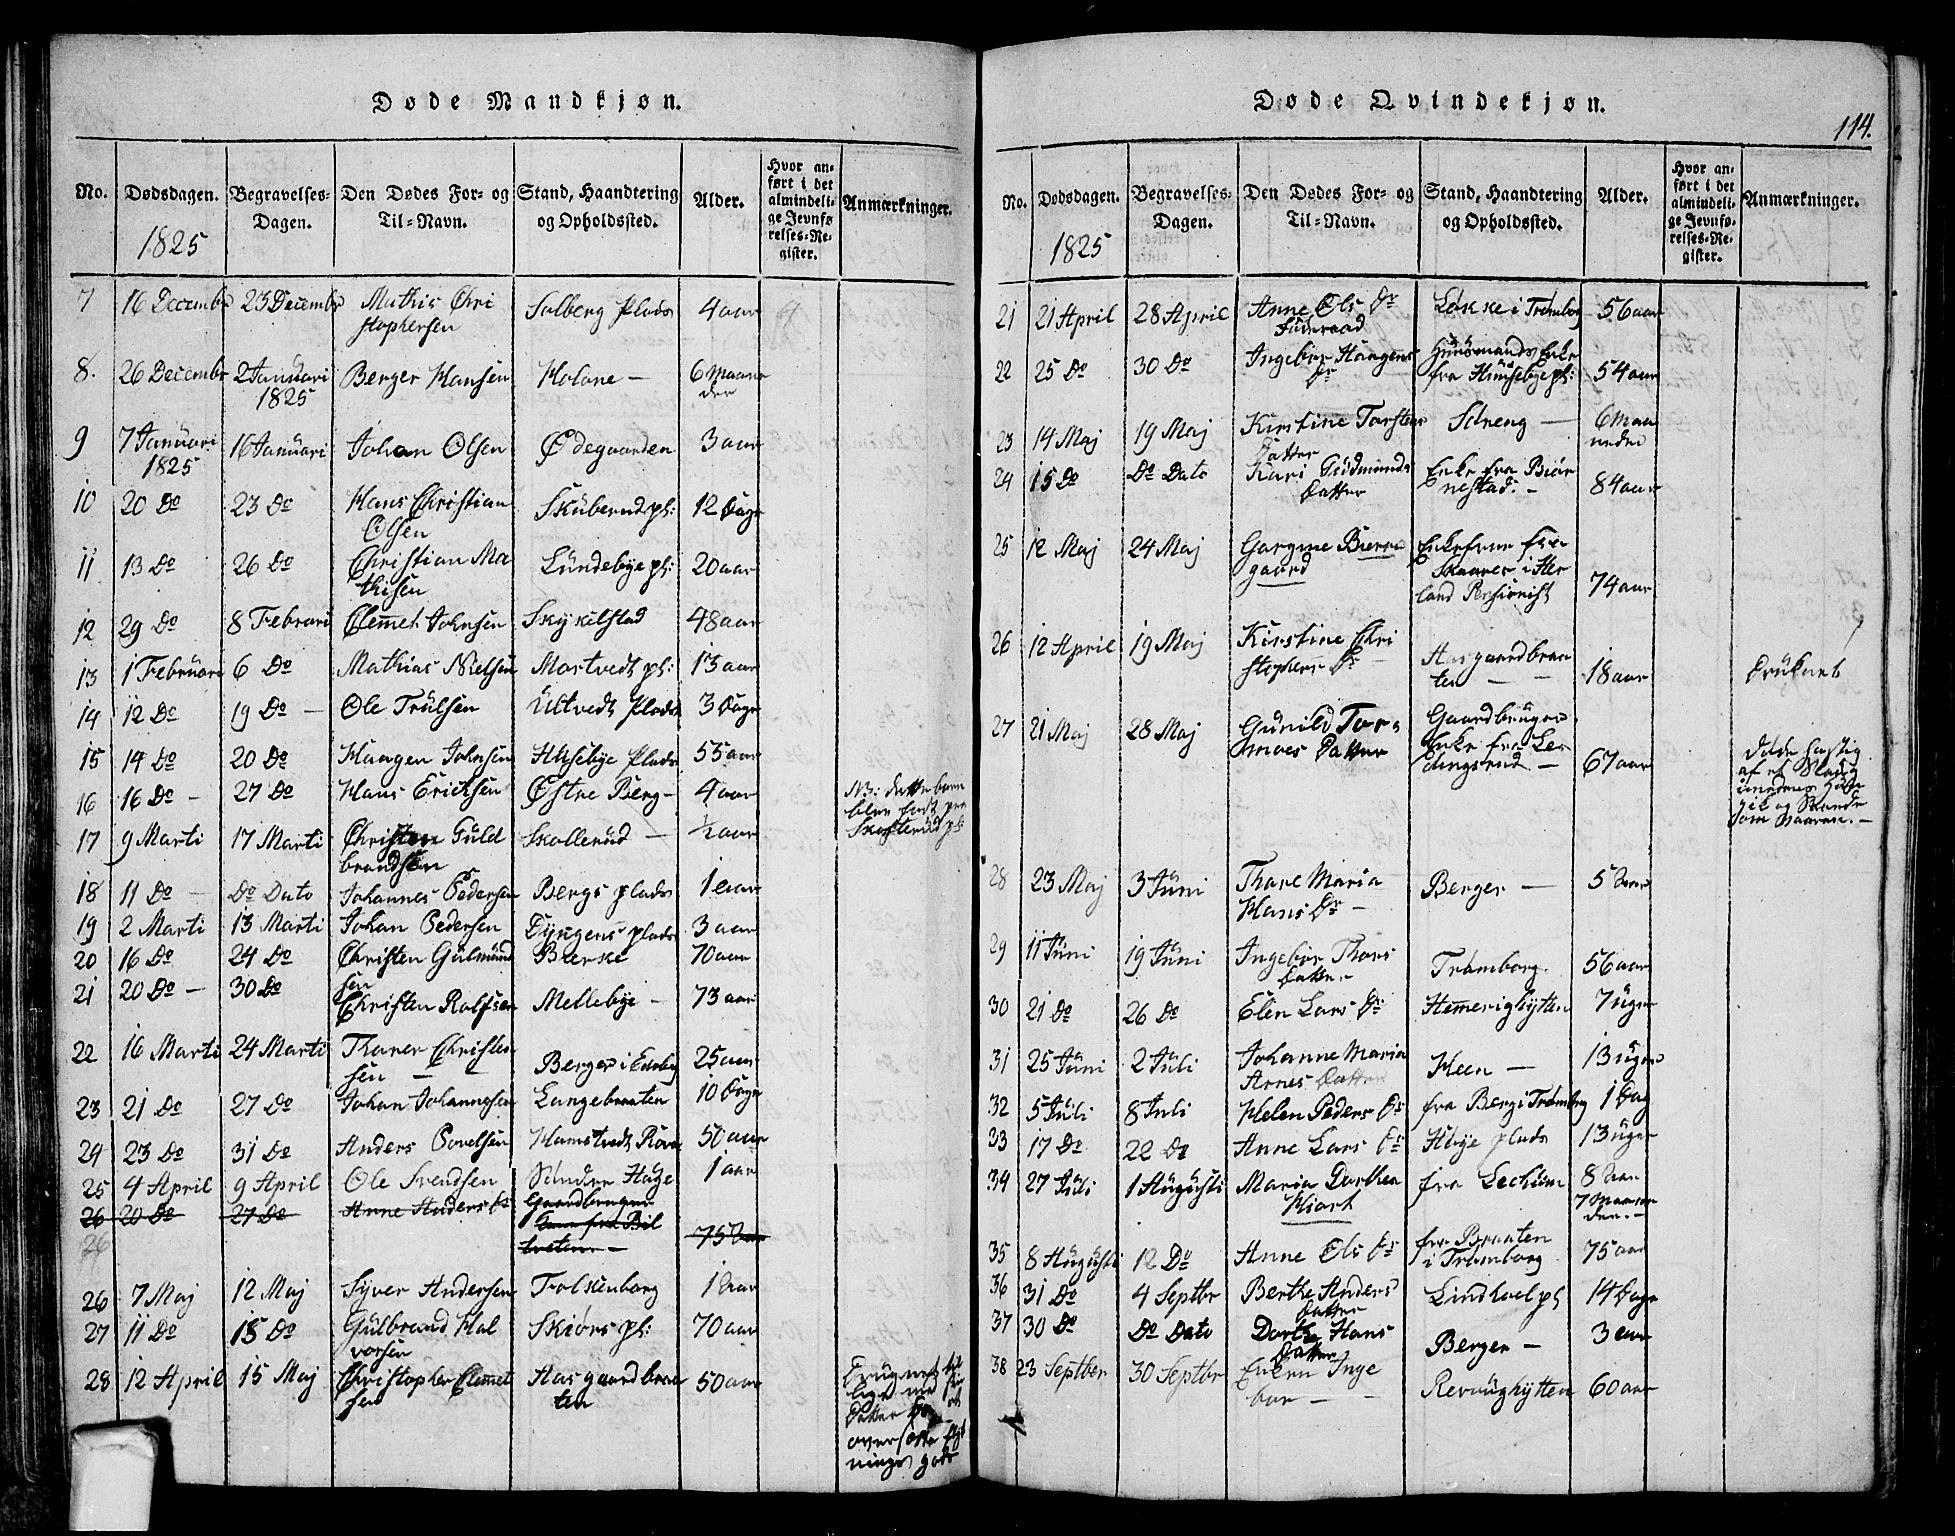 Døde Mandkjøn.
No. Dødsdagen. Begravelses-Dagen. Den Dødes For- og Til-Navn. Stand, Haandtering og Opholdssted. Alder. Hvor anført i det almindelige Jevnførelses-Register. Anmærkninger.
1825
7 16 Decembr 23 Decembr Mathis Chri Solberg Plads 4 aar
stophersen
8. 26 Decembr 2 Januari Berger Hansen Holane — 6 Maane
1825 der
9 7 Januari 16 Januari Johan Olsen Ødegaarden 3 aar
1825
10 20 Do 23 Do Hans Christian Skuberudpl: 12 Dage
Olsen
11 13 Do 26 Do Christian Ma Lundebye pl: 20 aar
thisen
12 29 Do 8 Februari Clemet Johnsen Skykelstad 48 aar
13 1 Februari 6 Do Mathias Nielsen Mortvedt pl: 13 aar
14 12 Do 19 Do — Ole Trulsen Ultvedt Plads 3 Dage
15 14 Do 20 Do Haagen Johnsen Husebye Plads 55 aar
16 16 Do — 27 Do Hans Ericksen Østre Berg — 4 aar NB: dette barn
blev født paa
17 9 Marti 17 Marti Christen Guld Skollerud — ½ aar pl:
brandsen
18 11 Do — Do Dato Johannes Pedersen Bergs plads 1 aar
19 2 Marti 13 Marti Johan Pedersen plads 3 aar
20 16 Do 24 Do Christen Gulmund Bierke 70 aar
sen
21 20 Do — 30 Do Christen Rolfsen Mellebye — 73 aar
22 16 Marti 24 Marti Thaner Christen Berger i 25 aar
sen —
23 21 Do 27 Do Johan Johannesen Langebraaten 10 Dage
24 23 Do 31 Do Anders Povelsen Hamstvedt 50 aar
25 4 April 9 April Ole Svendsen Søndre Hage 1 aar
26 20 Do 27 Do Anne Anders Dr Gaardbruger
fra Bil 75 aar
26 tveten —
26 7 Maj 12 Maj Syver Andersen Folkenborg 1 aar
27 11 Do 15 Do Gulbrand Hal Skiørs pl: 70 aar
vorsen
28 12 April 15 Maj Christopher Clemet Aasgaardbraa 50 aar
sen ten
Datter
Døde Qvindekjøn.
114.
No. Dødsdagen. Begravelses-Dagen. Den Dødes For- og Til-Navn. Stand, Haandtering og Opholdssted. Alder. Hvor anført i det almindelige Jevnførelses-Register. Anmærkninger.
1825
21 21 April 28 April Anne Ols Dr Løkke i Trømborg 56 aar
Føderaad
22 25 Do 30 Do Ingebor Haagens Huusmands Enke 54 aar
Dr fra Huusebye pl:
23 14 Maj 19 Maj Kirstine Torstens — 6 Maa
Datter neder
24 15 Do Do Dato Kari Gudmunds Enke fra Biør 84 aar
Datter nestad. —
25 12 Maj 24 Maj Gargine Bierre Enkefrue fra
gaard Skaarer i Her
land Pensionist 74 aar
26 12 April 19 Maj Kirstine Chri
stophers Dr — Aasgaardbraa
ten — 18 aar Druknet
27 21 Maj 28 Maj Gunild Tor= Gaardbruger
moes Datter Enke fra
— 67 aar Døde hastig
af et Slag
28 23 Maj 3 Juni Thare Maria Berger — 5 aar
Hans Dr —
29 11 Juni 19 Juni Ingebor Thors Trømborg. 56 aar
Datter
30 21 Do 26 Do Elen Lars Dr Hemerighytten 7 uger
31 25 Juni 2 Juli Johanne Maria Heen — 13 uger
Arnes Datter
32 5 Juli 8 Juli Helen Peders Dr fra Berg i Trømborg 1 Dag
33 17 Do 22 Do Anne Lars Dr plads 13 uger
34 27 Juli 1 Augusti Maria Dorthea fra Lechum 8 aar
Hiort 7 Maane
der. —
35 8 Augusti 12 Do Anne Ols Dr fra Braaten 75 aar
i Trømborg
36 31 Do 4 Septbr Berthe Anders Lindhol pl 14 Dage
Datter
37 30 Do Do Dato Dorthe Hans Berger — 3 aar
Datter
38 23 Septber 30 Septbr Enken Inge Revoughytten 60 aar
bor —